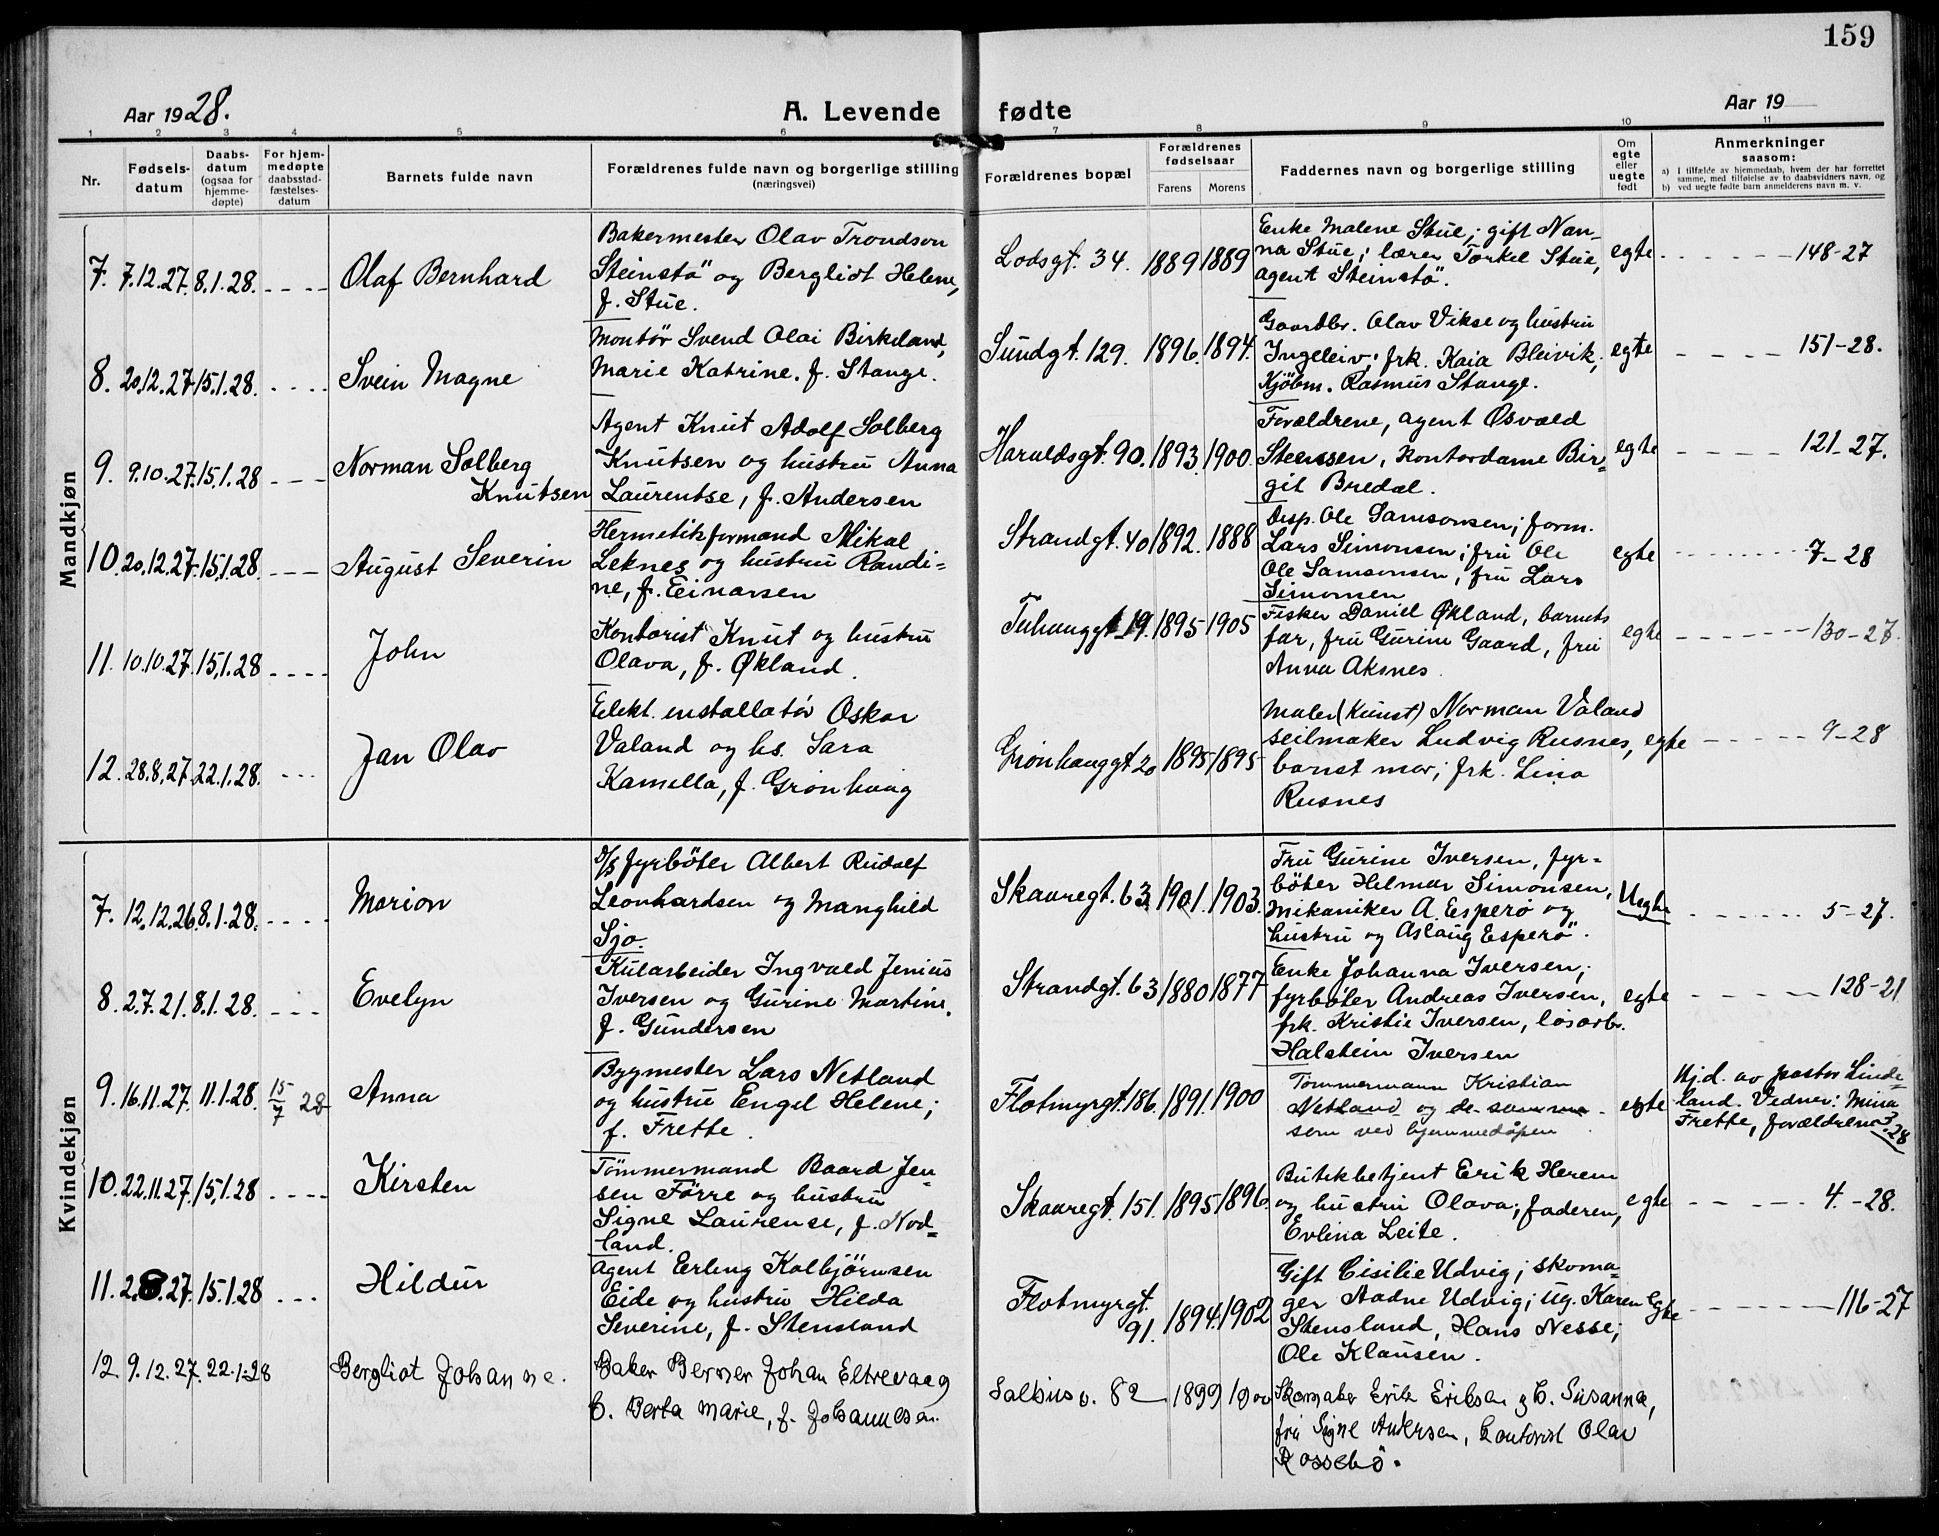 159
Aar 1928.
A. Levende fødte
Aar 19
1 2 3 4 5 6 7 8 9 10 11
Nr.
Fødsels-
datum
Daabs-
datum
(ogsaa for
hjemme-
døpte)
For hjem-
medøpte
daabsstad-
fæstelses-
datum
Barnets fulde navn
Forældrenes fulde navn og borgerlige stilling
(næringsvei)
Forældrenes bopæl
Forældrenes
fødselsaar
Farens Morens
Faddernes navn og borgerlige stilling
Om
egte
eller
uegte
født
Anmerkninger
saasom:
a) I tilfælde av hjemmedaab, hvem der har forrettet
samme, med tilføielse av to daabsvidners navn, og
b) ved uegte fødte barn anmelderens navn m. v.
Mandkjøn
7. 7.12.27. 8.1.28. Olaf Bernhard
Bakermester Olav Trondson
Steinstø og Bergliot Helene,
f. Stue.
Lodsgt. 34. 1889 1889
Enke Malene Stue; gift Nan-
na Stue; lærer Torkel Stue,
agent Steinstø.
egte 148-27
8. 20.12.27. 15.1.28. Svein Magne
Montør Svend Olai Birkeland,
Marie Katrine, f. Stange.
Sundgt. 129. 1896. 1894.
Gaardbr. Olav Vikse og hustru
Ingeleiv; frk. Kaia Bleivik,
Kjøbm. Rasmus Stange.
egte 151-28.
9. 9.10.27. 15.1.28 Norman Solberg
Knutsen
Agent Knut Adolf Solberg
Knutsen og hustru Anna
Laurentse, f. Andersen
Haraldsgt. 90. 1893. 1900.
Forældrene, agent Osvald
Steensen, kontordame Bir-
git Bredal.
egte 121-27.
10. 20.12.27. 15.1.28. August Severin
Hermetikformand Mikal
Leknes og hustru Randi-
ne, f. Einarsen
Strandgt. 40 1892. 1888
Disp. Ole Samsonsen; form.
Lars Simonsen; fru Ole
Ole Samsonsen, fru Lars
Simonsen
egte 7-28
11. 10.10.27. 15.1.28 John
Kontorist Knut og hustru
Olava, f. Økland.
Tuhauggt. 19. 1895 1905
Fisker Daniel Økland, barnets
far, fru Gurine Gaard, fru
Anna Aksnes.
egte 130-27.
12. 28.8.27. 22.1.28. Jan Olav
Elekt. installatør Oskar
Valand og hs. Sara
Kamella, f. Grønhaug
Grønhauggt 20 1895 1895
Maler (Kunst) Norman Våland
seilmaker Ludvig Rusnes,
barnst mor; frk. Lina
Rusnes
egte 9-28
Kvindekjøn
7. 12.12.26. 8.1.28. Marion
D/S fyrbøter Albert Rudolf
Leonhardsen og Manghild
Sjo.
Skaaregt. 63 1901. 1903.
Fru Gurine Iversen, fyr-
bøter Helmar Simonsen,
Mikaniker A. Esperø og
hustru og Aslaug Esperø.
Uegte 5-27.
8. 2.7.21. 8.1.28. Evelyn
Kularbeider Ingvald Jenius
Iversen og Gurine Martine,
f. Gundersen
Strandgt. 63 1880 1877
Enke Johanna Iversen;
fyrbøter Andreas Iversen,
frk. Kristie Iversen, løsarb.
Halstein Iversen
egte 128-21
9. 16.11.27. 11.1.28. 15/7 28 Anna
Bygmester Lars Netland
og hustru Engel Helene;
f. Frette.
Flotmyrgt. 186. 1891. 1900
Tømmermann Kristian
Netland og de samme
som ved hjemmedåpen.
egte
Hj.d. av pastor Linde-
land. Vedner: Mina
Frette, forældrene. 3-28
10. 22.11.27. 15.1.28 Kirsten
Tømmermand Baard Jen-
sen Førre og hustru
Signe Laurense, f. Nod-
land.
Skaaregt. 151. 1895 1896.
Butikbetjent Erik Herem
og hustru Olava; faderen,
Evlina Leite.
egte 4.-28.
11. 2.8.27. 15.1.28 Hildur
Agent Erling Kolbjørnsen
Eide og hustru Hilda
Severine, f. Stensland
Flotmyrgt.
91. 1894. 1902
Gift Cisilie Udvig; skoma-
ger Aadne Udvig; ug. Karen
Stensland, Hans Nesse;
Ole Klausen.
Egte 116-27
12. 9.12.27. 22.1.28 Bergliot Johanne.
Baker Berner Johan Eltrevaag
h. Berta Marie, f. Johannesen.
Salhusv. 82 1899 1900
Skomaker Erik Eriksen og h. Susanna,
fru Signe Andersen, kontorist Olav
Rossebø.